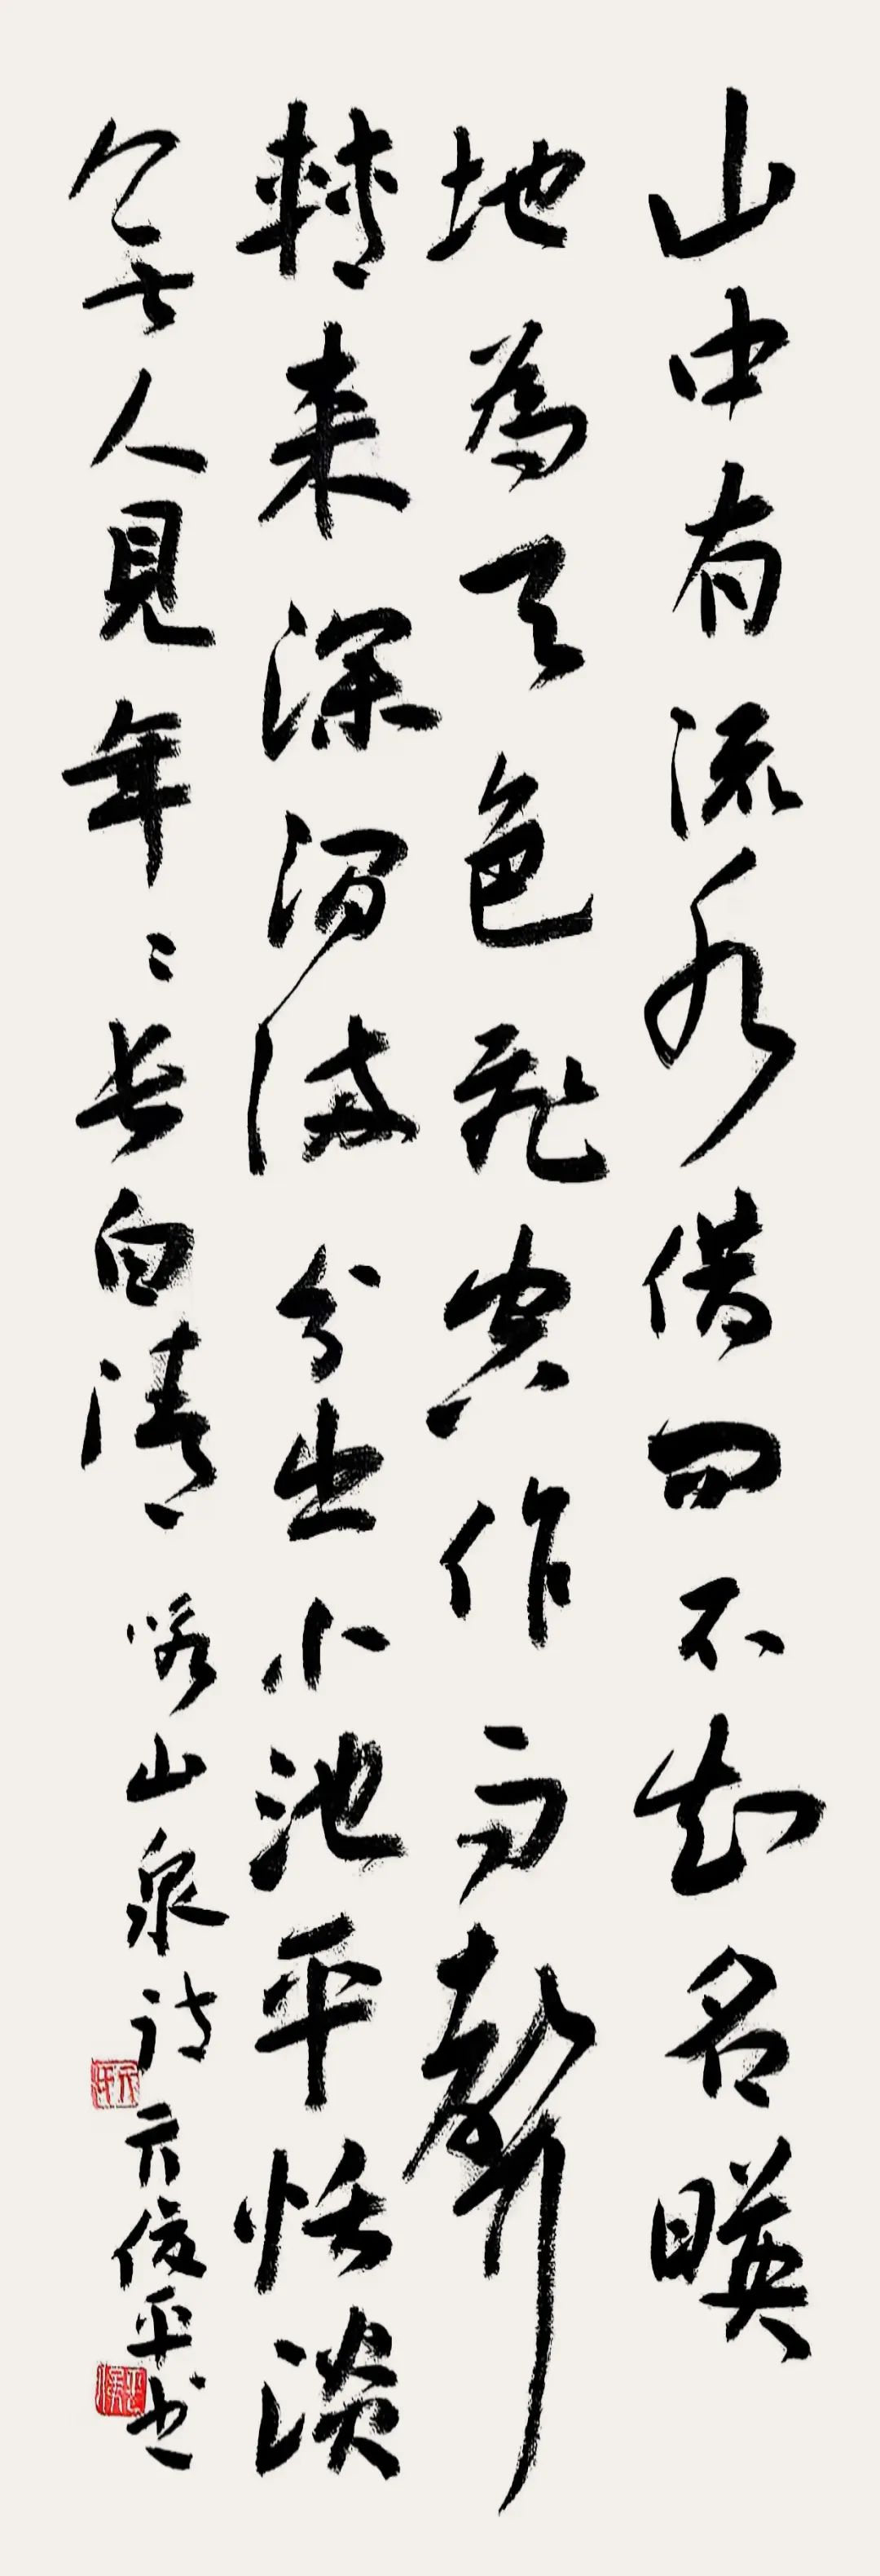 山中有流水借問不知名暎
地為天色飛空作雨聲
轉来深澗滿分出小池平恬淡
無人見年〻長自清 咏山泉詩 亓俊平書